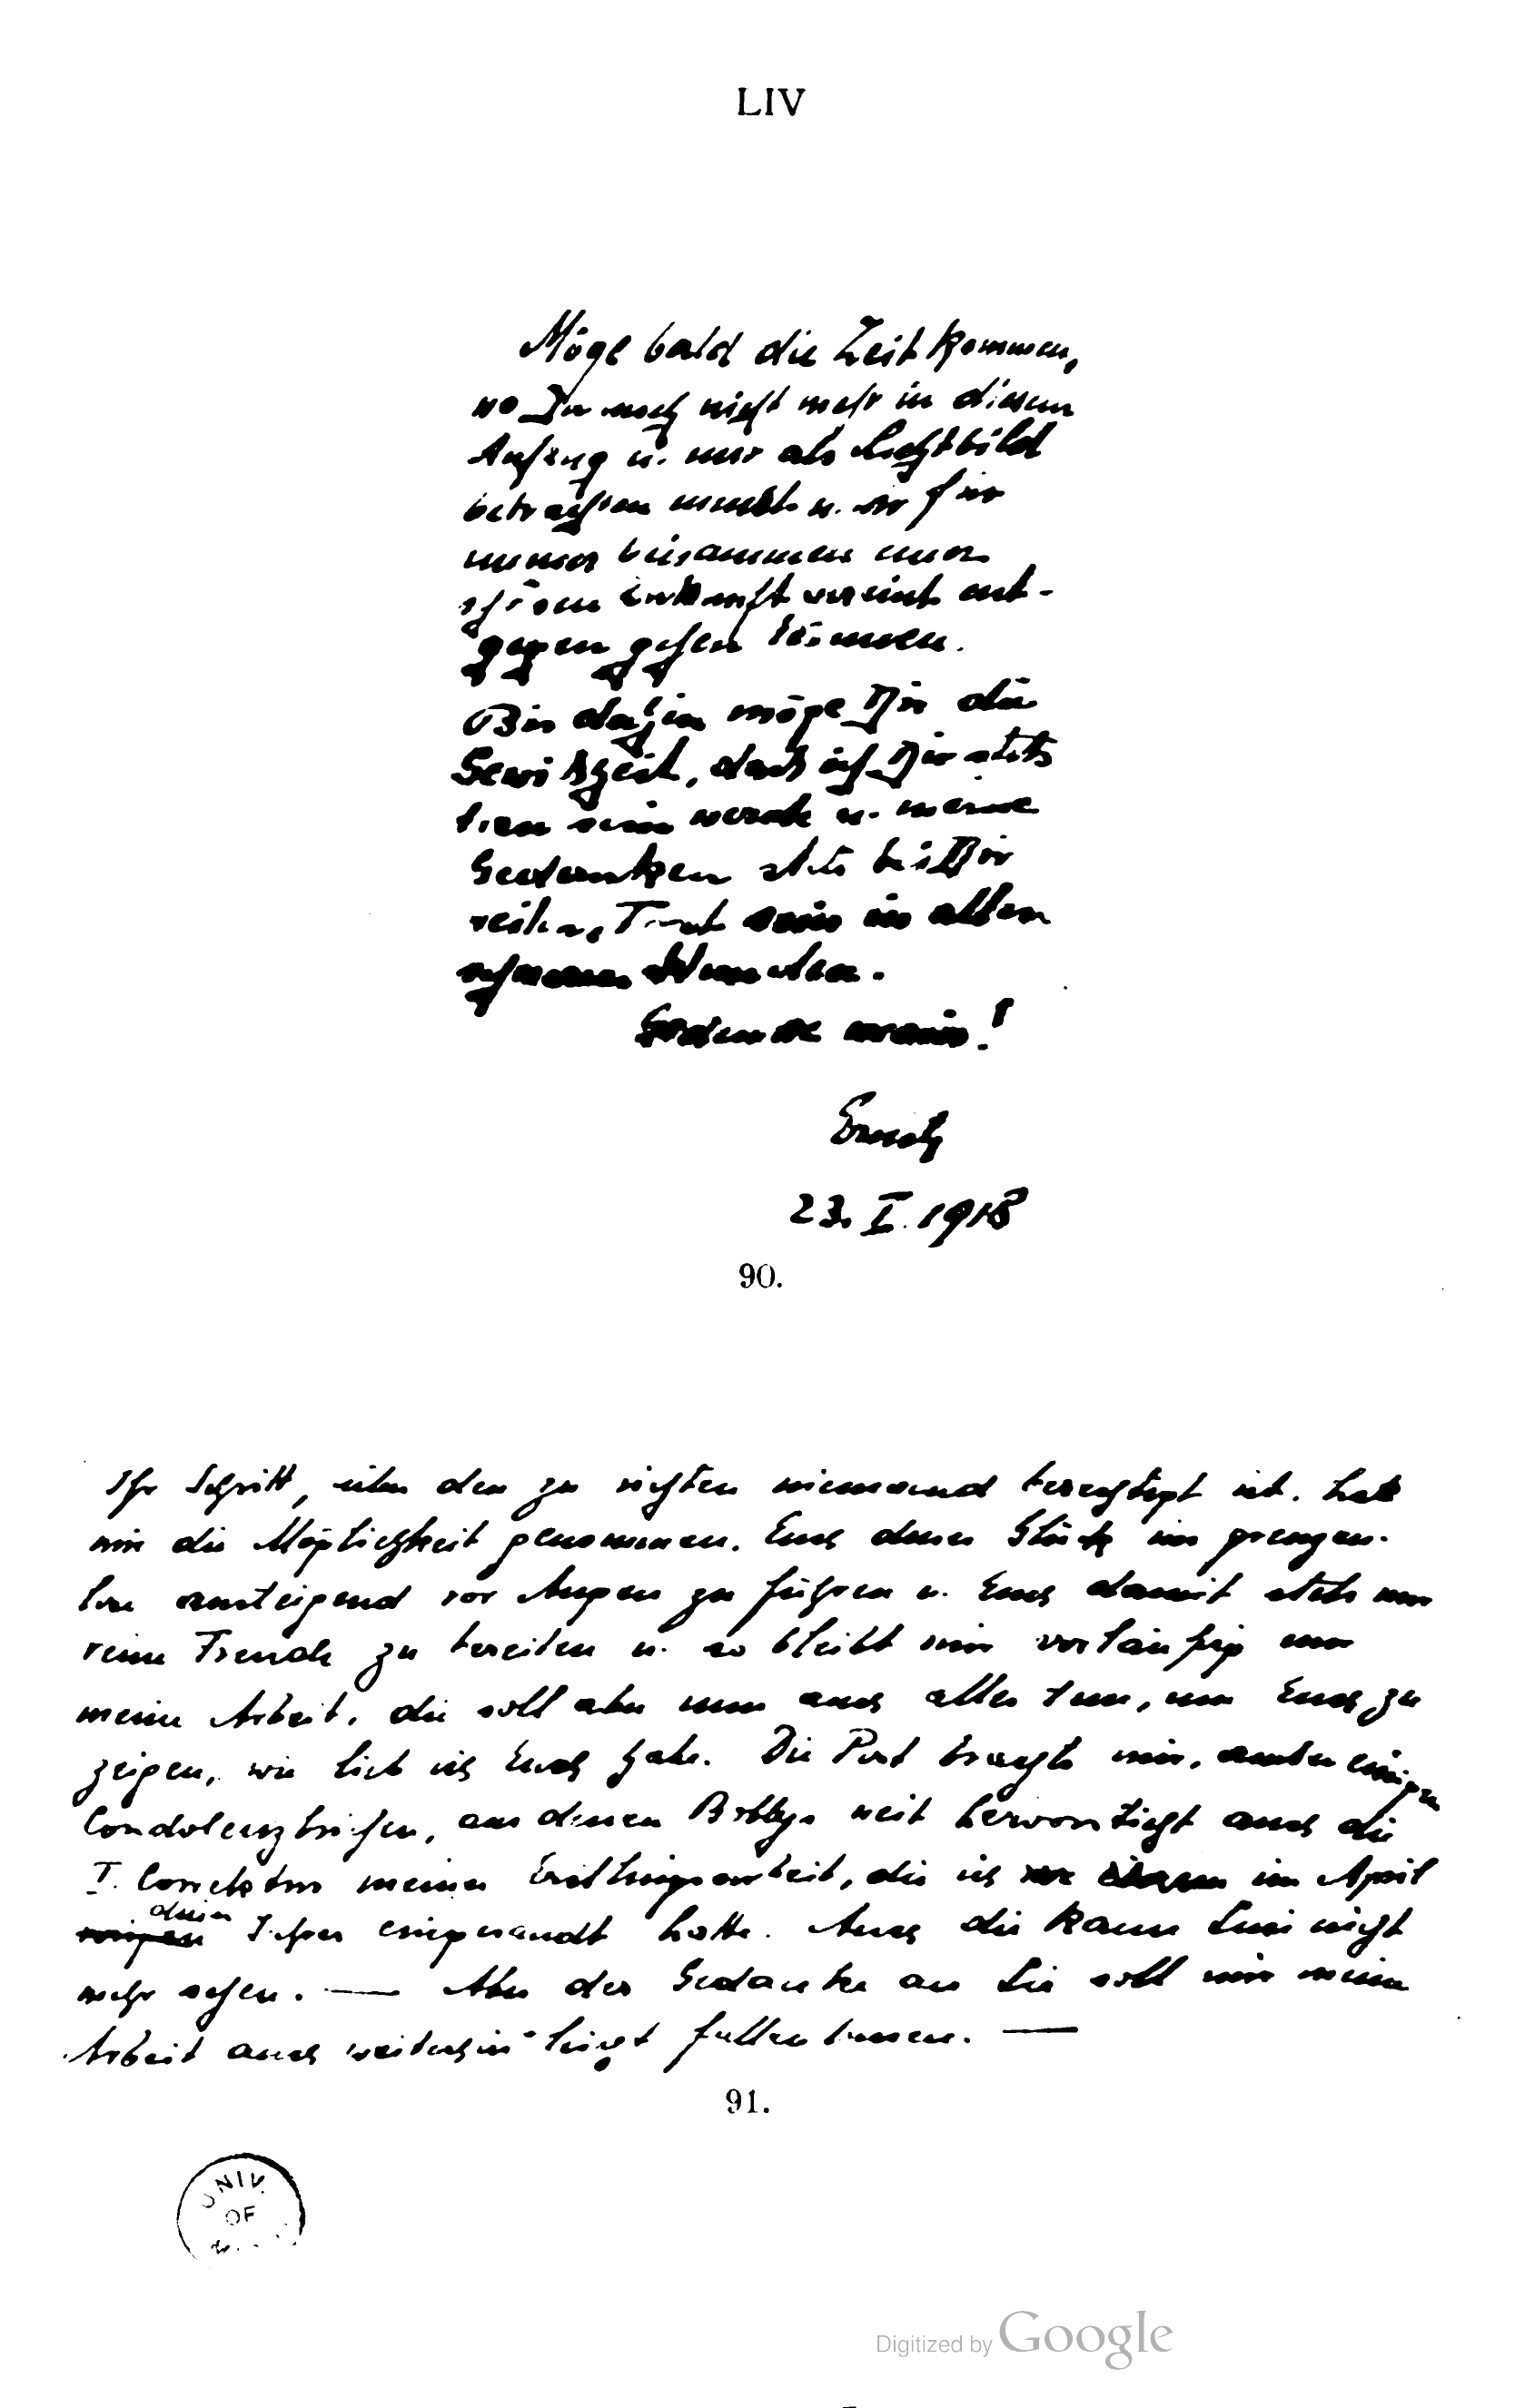 LIV
Möge bald die Zeit kommen,
wo Du mich nicht mehr in diesem
Aufzug u. nur als Lichtbild
betrachten musst u. wir für
immer beisammen einer
schönen Zukunft vereint ent-
gegen gehen können.
Bis dahin möge Dir die
Gewißheit, daß ich Dir stets
treu sein werde u. meine
Gedanken stets bei Dir
weilen, Trost sein in allen
schweren Stunden.
Gedenke mein!
Ernst
23. I. 1918
90.
Ihr Schritt, über den zu richten niemand berechtigt ist, hat
mir die Möglichkeit genommen, Euch dieses Glück im grenzen-
los ansteigend vor Augen zu führen u. Euch damit stets nur
reine Freude zu bereiten u. so bleibt mir vorläufig nur
meine Arbeit, die soll aber nun auch alles tun, um Euch zu
zeigen, wie lieb ich Euch habe. Die Post brachte mir, außer einigen
Condolenzbriefen, aus denen Bobbys weit hervorsticht auch die
I. Correktur meiner Erstlingsarbeit, die ich im April
dieses Jahres eingesandt hatte. Auch die kann Susi nicht
mehr sehen. — Aber der Gedanke an Sie soll mir meine
Arbeit auch weiterhin leicht fallen lassen. —
91.
UNIV.
OF
Digitized by Google